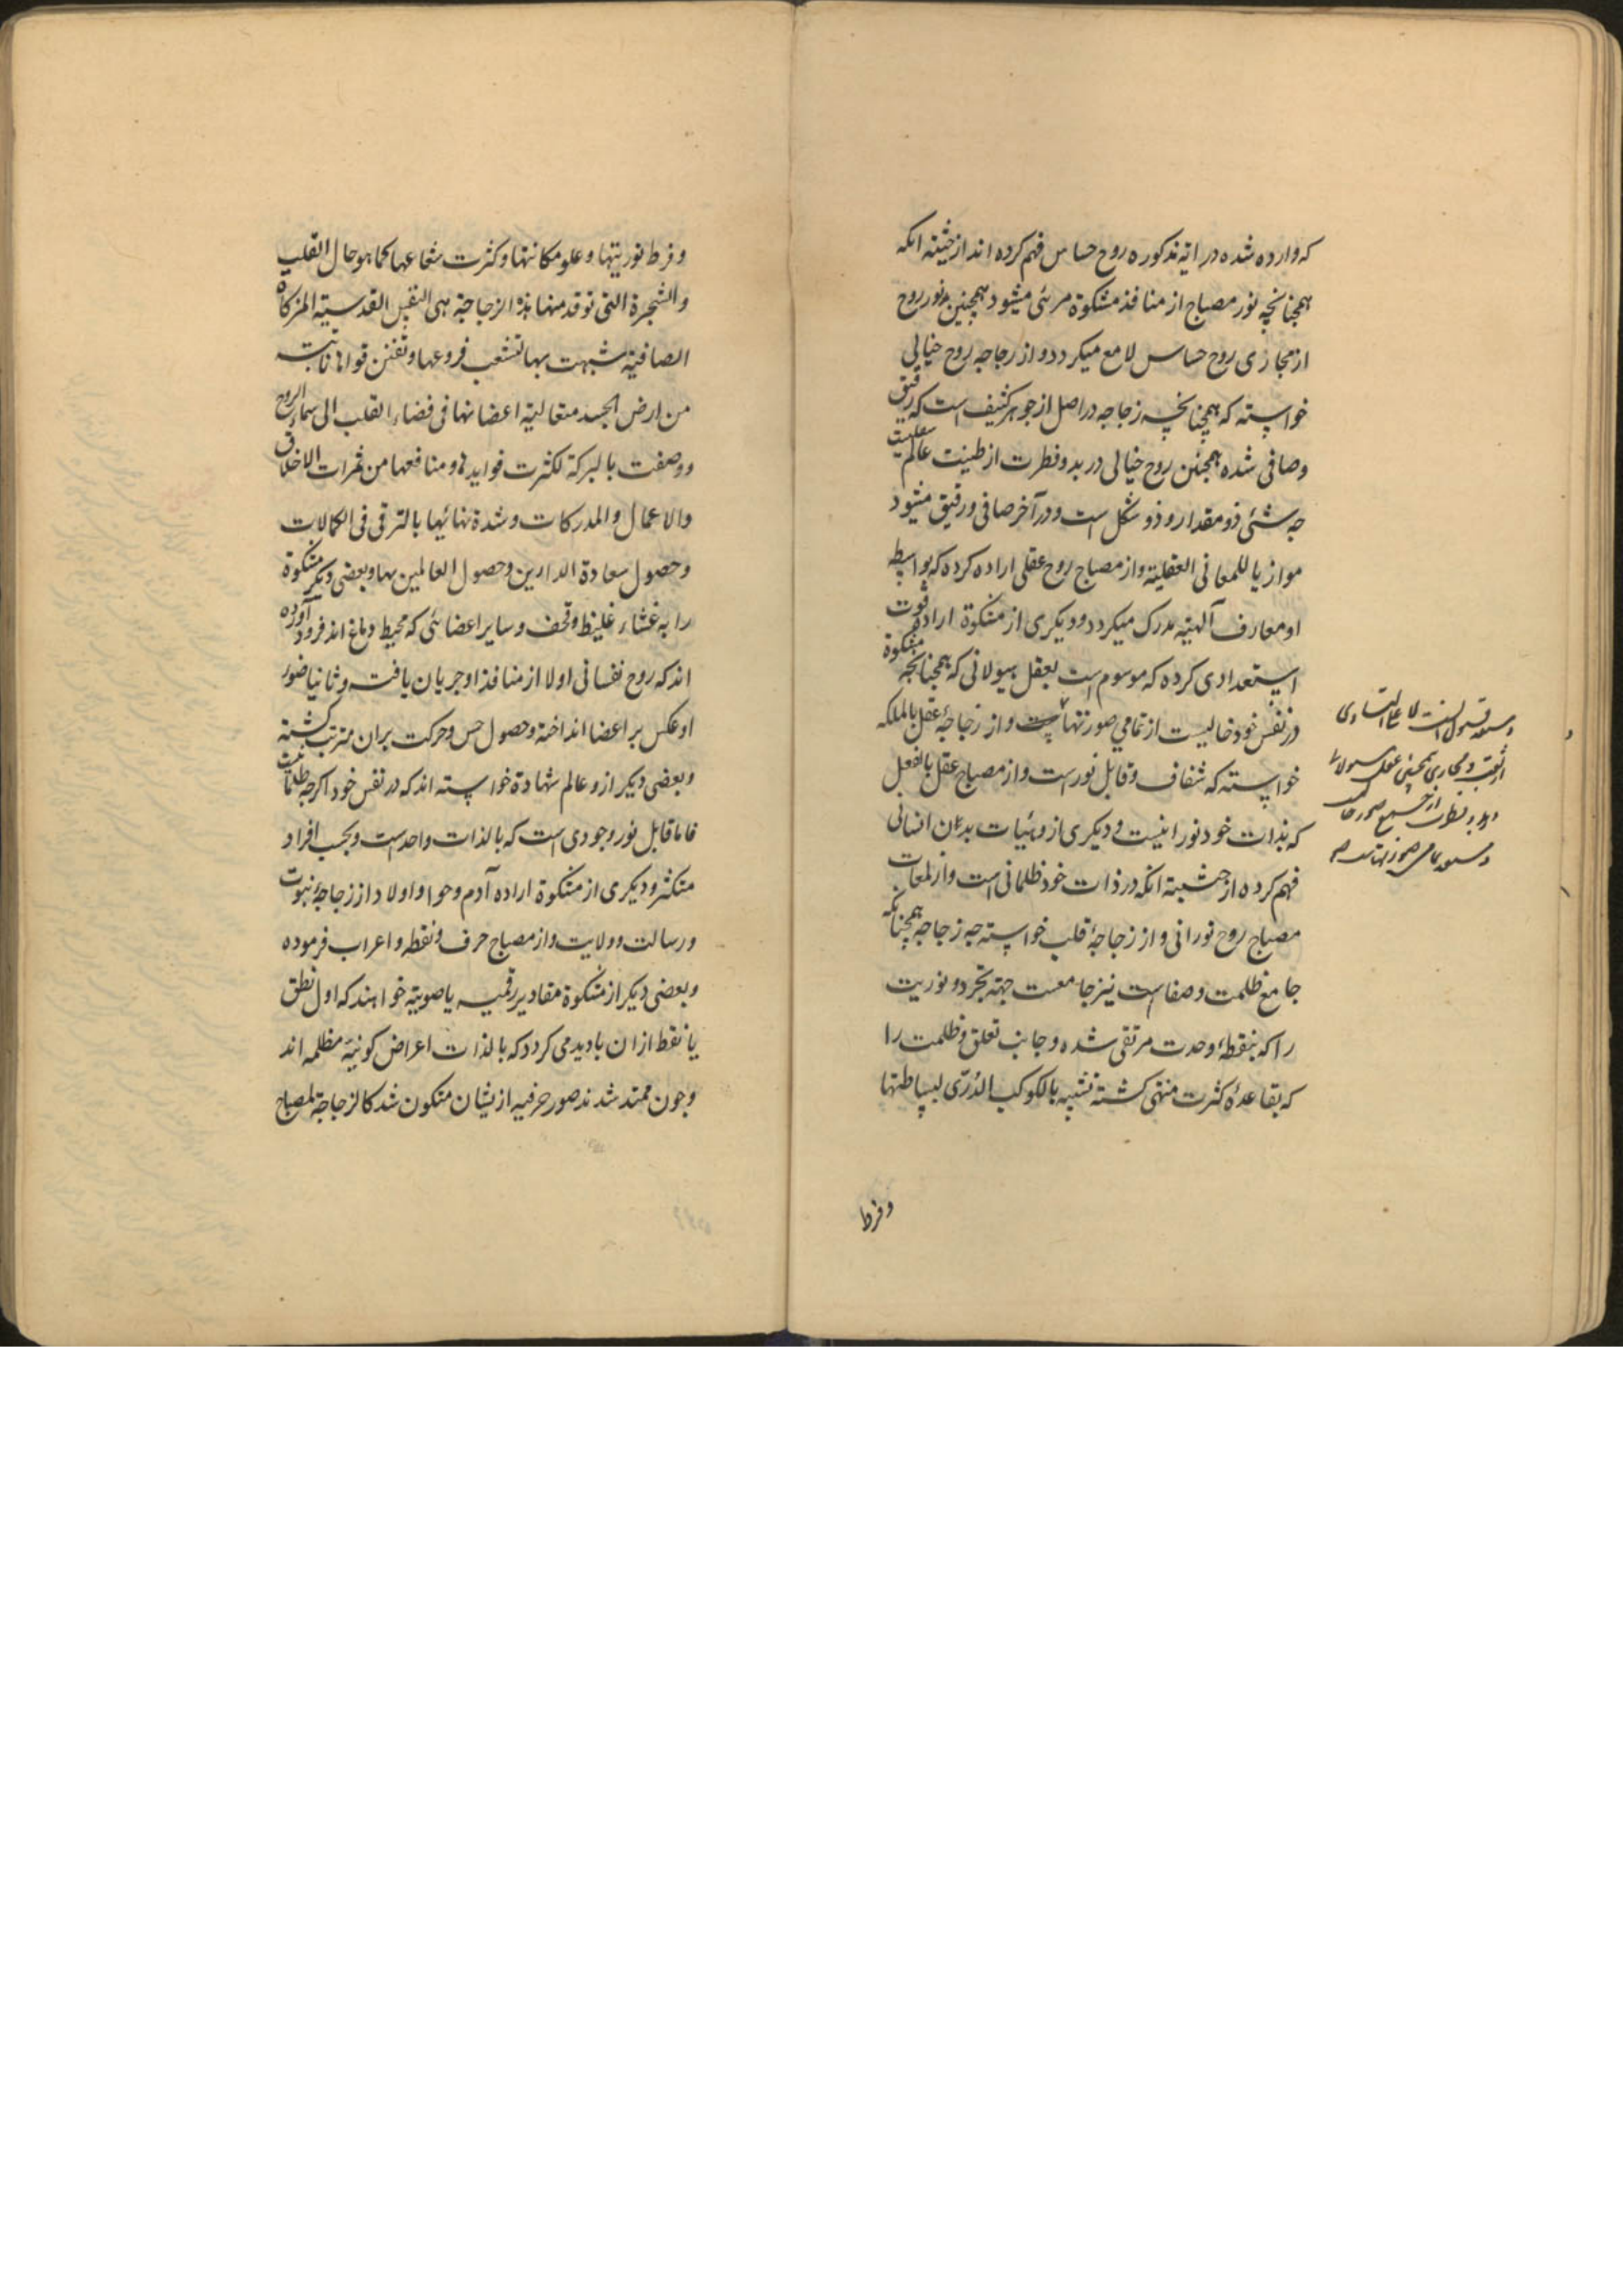 که وارده شده در ایة مذکوره روح حساس فهم کرده اند از حیثیه انکه
همچنانچه نور مصباح از منافذ مشکوة مرئی میشود همچنین نور روح
از مجازی روح حساس لامع میکردد و از زجاجه روح خیالی
خواسته که همچنانچه زجاجه در اصل از جوهر کثیف است که رقیق
و صافی شده همچنین روح خیالی در بدو فطرت از طینت عالم
چه شئی ذو مقدار و ذو شکل است و در آخر صافی و رقیق میشود
موازیا للمعانی العقلیة و از مصباح روح عقلی اراده کرده که بواسطه
او معارف آلهیه مدرک میکردد و دیکری از مشکوة اراده قوت
استعدادی کرده که موسوم است بعقل هیولانی که همچنانچه مشکوة
در نفس خود خالیست از تمامی صور تنها و از زجاجۀ عقل بالملکه
خواسته که شفاف و قابل نور است و از مصباح عقل بالفعل
که بذات خود نورانیست و دیکری از و هیئات بدن انسانی
فهم کرده از حیثیة انکه در ذات خود ظلمانی است و از لمعات
مصباح روح نورانی و از زجاجۀ قلب خواسته چه زجاجه همچنانکه
جامع ظلمت و صفاست نیز جامعست جهة تجرد و نوریت
را که بنقطۀ وحدت مرتقی شده و جانب تعلق و ظلمت را
که بقاعدۀ کثرت منتهی کشته تشبه بالکوکب الدُرّی لبساطتها
وفرط
وفرط نوریتها و علو مکانتها وکثرت شعاعها کما هو حال القلب
والشجرة التی توقد منها هذه الزجاجة هی النفس القدسیة المزکاة
الصافیة شبهت بها تشعب فروعها و تفنن قواها نابتة
من ارض الجسد متعالیة اعضانها فی فضاء القلب الی سماء الروح
ووصفت بالبرکة لکثرت فوایدها ومنافعها من ثمرات الاخلاق
والاعمال والمدرکات وشدة نمائها بالترقی فی الکمالات
وحصول سعادة الدارین وحصول العالمین بها وبعضی دیکر مشکوة
را به غشاء غلیظ و قحف و سایر اعضائی که محیط دماغ اند فرود آورده
اند که روح نفسانی اولا از منافذ او جریان یافته و ثانیا ضوء
او عکس بر اعضا انداخته و حصول حس و حرکت بران مترتب کشته
وبعضی دیکر ازو عالم شهادة خواسته اند که در نفس خود اکرچه ظلمانیست
فاما قابل نور وجودی است که بالذات واحد است و بحسب افراد
متکثر و دیکری از مشکوة اراده آدم و حوا و اولاد از زجاجۀ نبوت
و رسالت و ولایت و از مصباح حرف و نقطه و اعراب فرموده
وبعضی دیکر از مشکوة مقادیر رقمیه یا صوتیة خواهند که اول نطق
یا نقط ازان بادید می کردد که بالذات اعراض کونیۀ مظلمه اند
وچون ممتد شدند صور حرفیه از یشان متکون شد کالزجاجة لمصباح